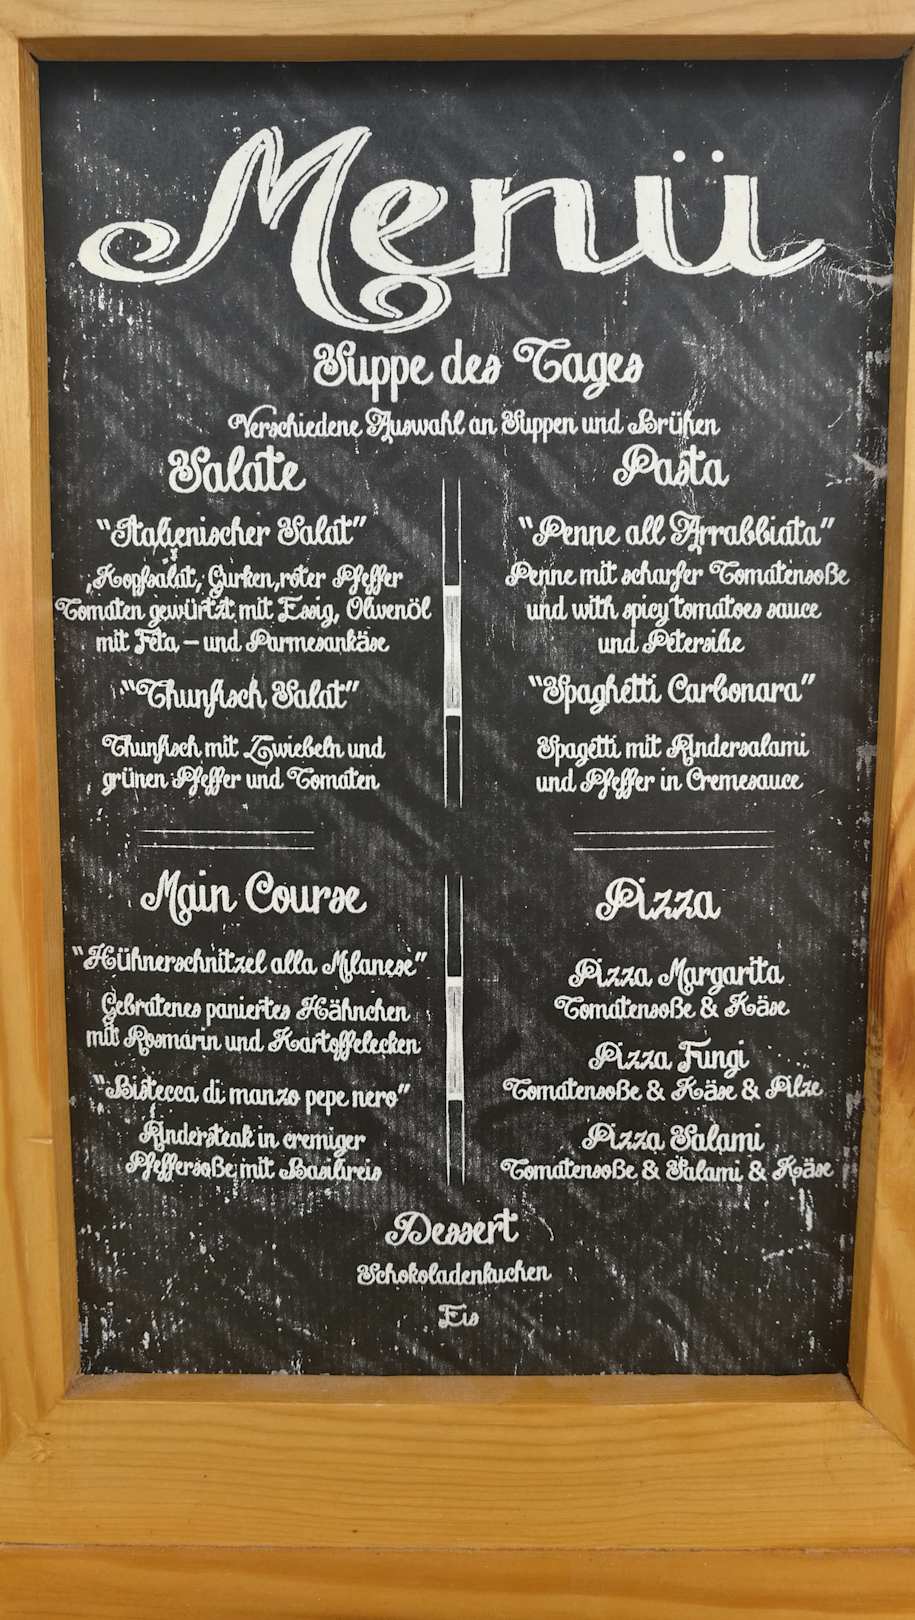 Menü
Suppe des Tages
Verschiedene Auswahl an Suppen und Brühen
Salate
"Italienischer Salat"
,Kopfsalat, Gurken,roter Pfeffer
Tomaten gewürtzt mit Essig, Olivenöl
mit Feta – und Parmesankäse
"Thunfisch Salat"
Thunfisch mit Zwiebeln und
grünen Pfeffer und Tomaten
Pasta
"Penne all Arrabbiata"
Penne mit scharfer Tomatensoße
und with spicy tomatoes sauce
und Petersilie
"Spaghetti Carbonara"
Spagetti mit Rindersalami
und Pfeffer in Cremesauce
Main Course
"Hühnerschnitzel alla Milanese"
Gebratenes paniertes Hähnchen
mit Rosmarin und Kartoffelecken
"Bistecca di manzo pepe nero"
Rindersteak in cremiger
Pfeffersoße mit Basilireis
Pizza
Pizza Margarita
Tomatensoße & Käse
Pizza Fungi
Tomatensoße & Käse & Pilze
Pizza Salami
Tomatensoße & Salami & Käse
Dessert
Schokoladenkuchen
Eis